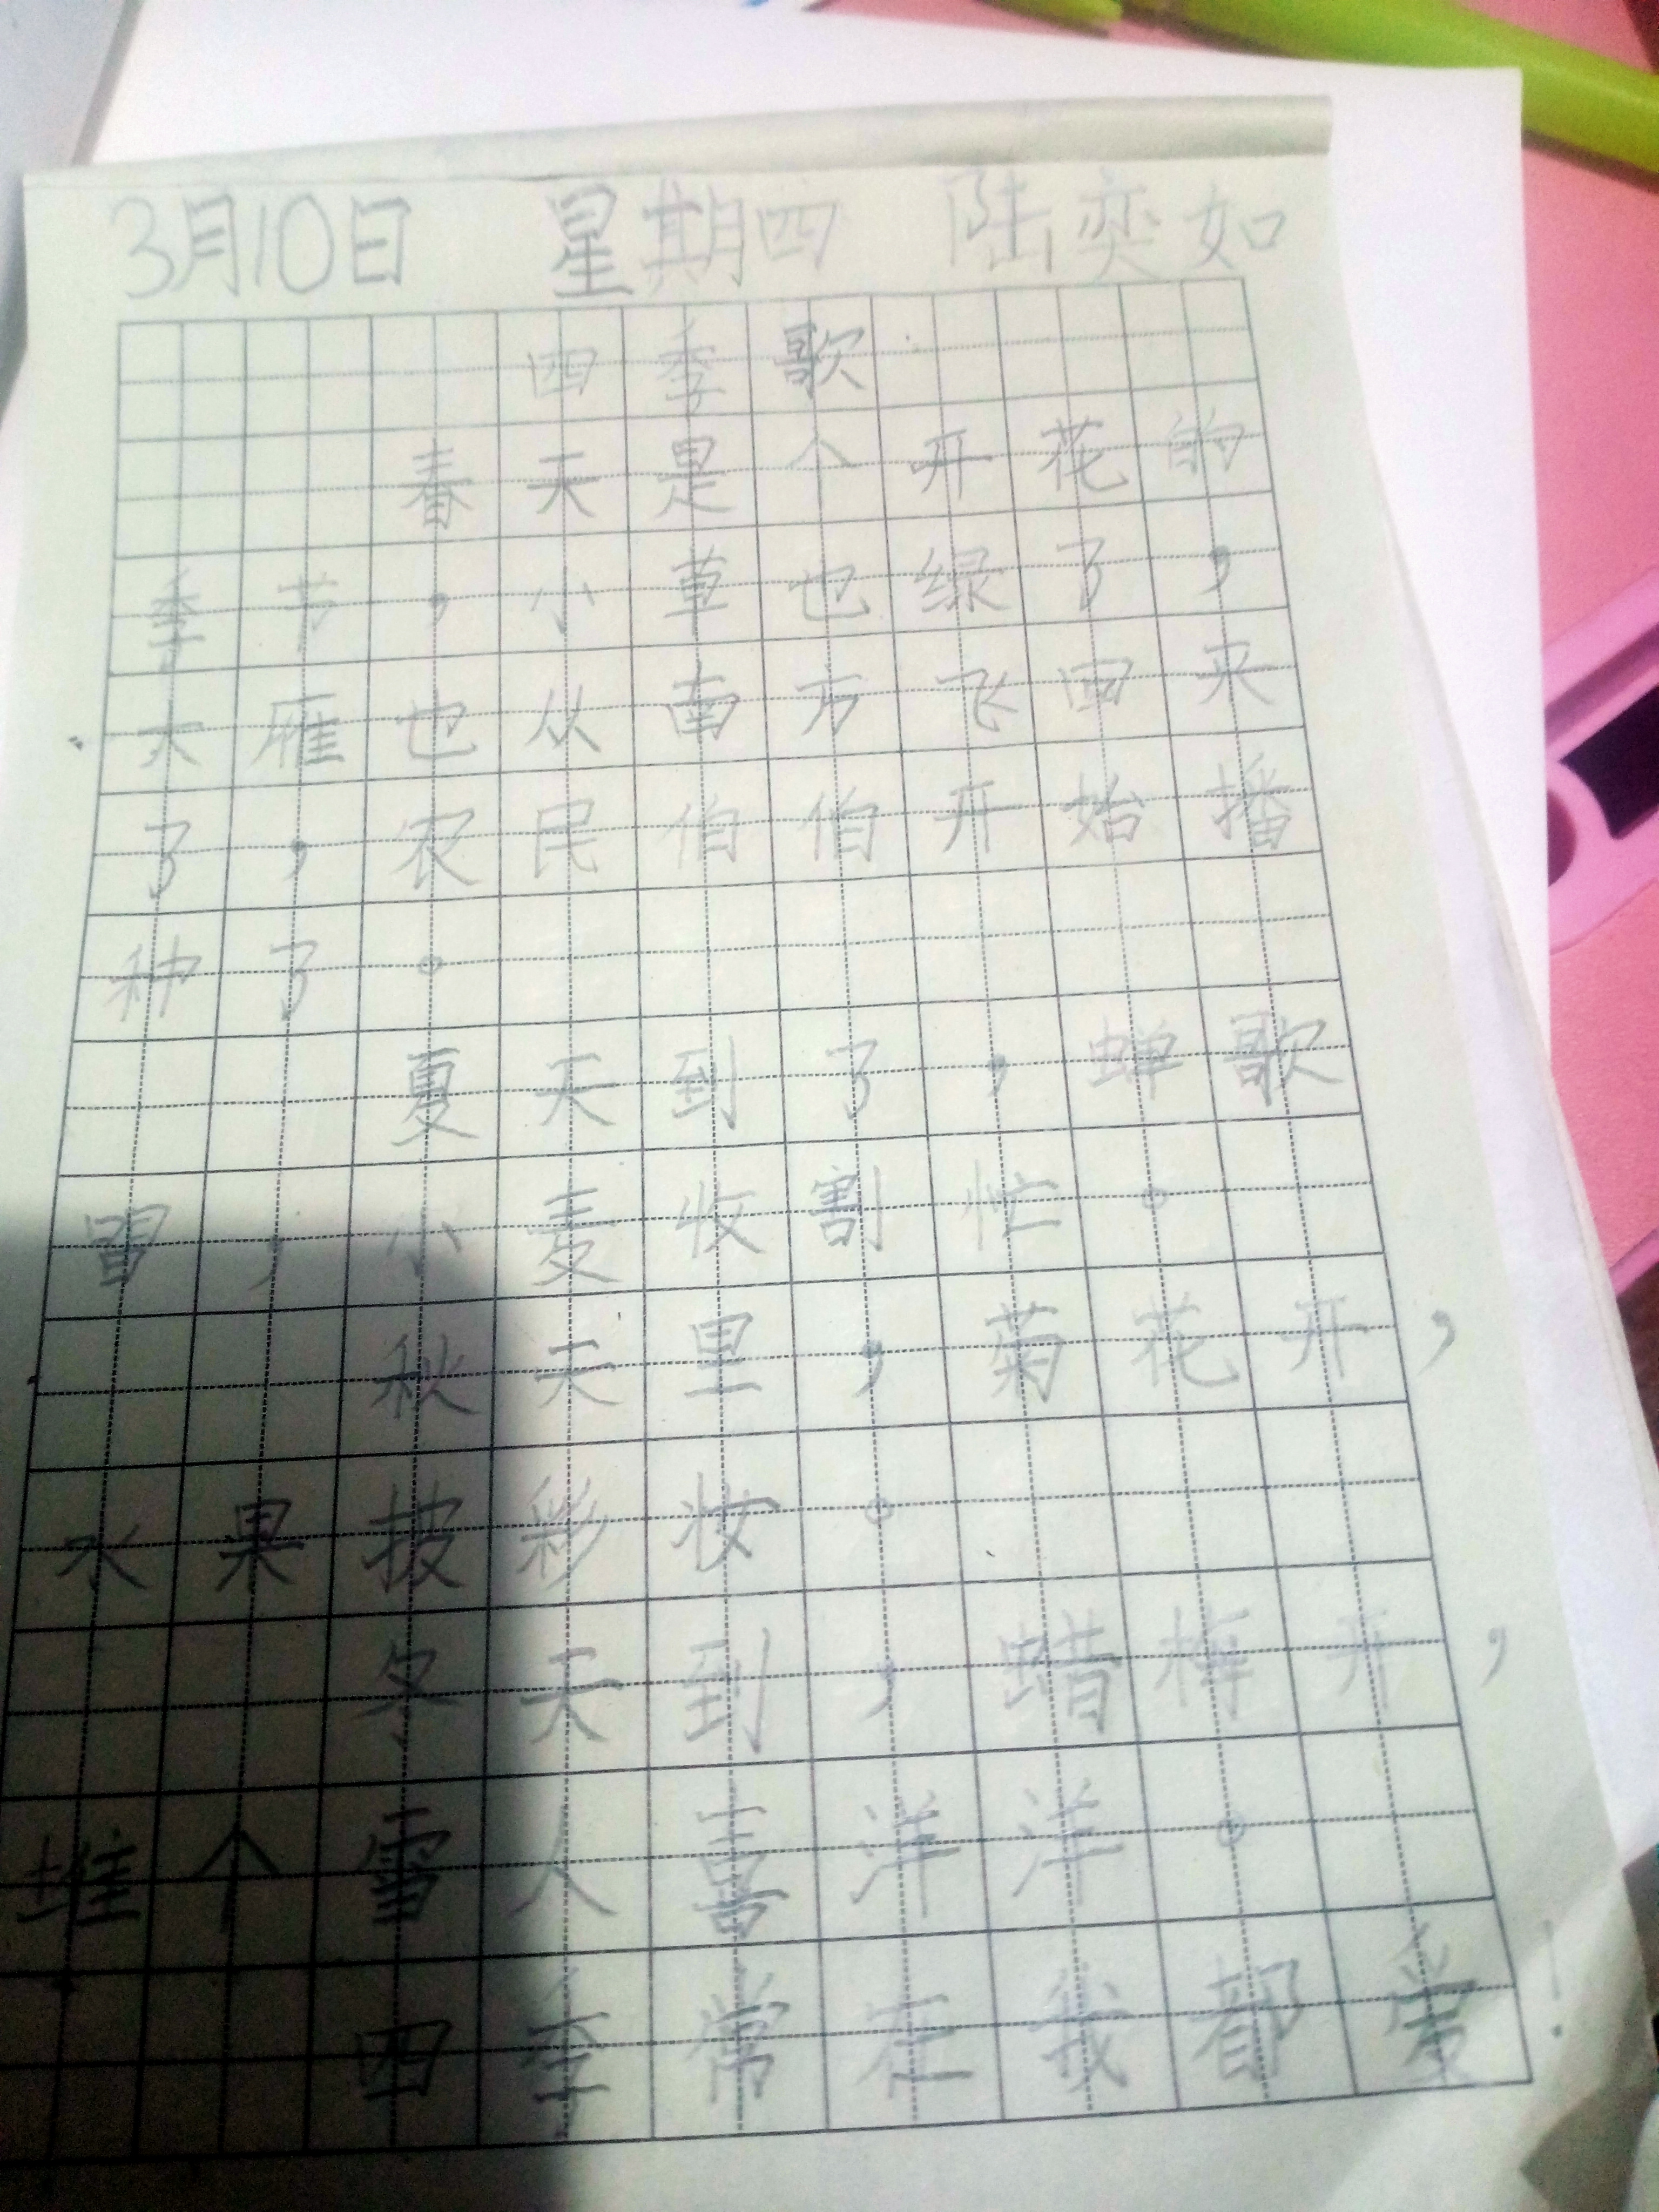 3月10日 星期四 陆奕如
四季歌
春天是个开花的
季节，小草也绿了，
大雁也从南方飞回来
了，农民伯伯开始播
种了。
夏天到了，蝉歌
习，小麦收割忙。
秋天里，菊花开，
水果披彩妆。
冬天到，蜡梅开，
堆个雪人喜洋洋。
四季常在我都爱！